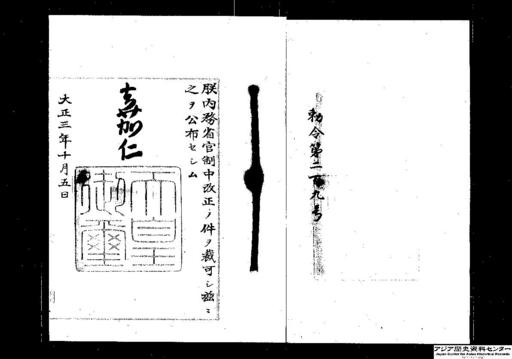 勅令第二百九号
朕内務省官制中改正ノ件ヲ裁可シ茲ニ
之ヲ公布セシム
嘉仁
天皇
御璽
大正三年十月五日
アジア歴史資料センター
Japan Center for Asian Historical Records